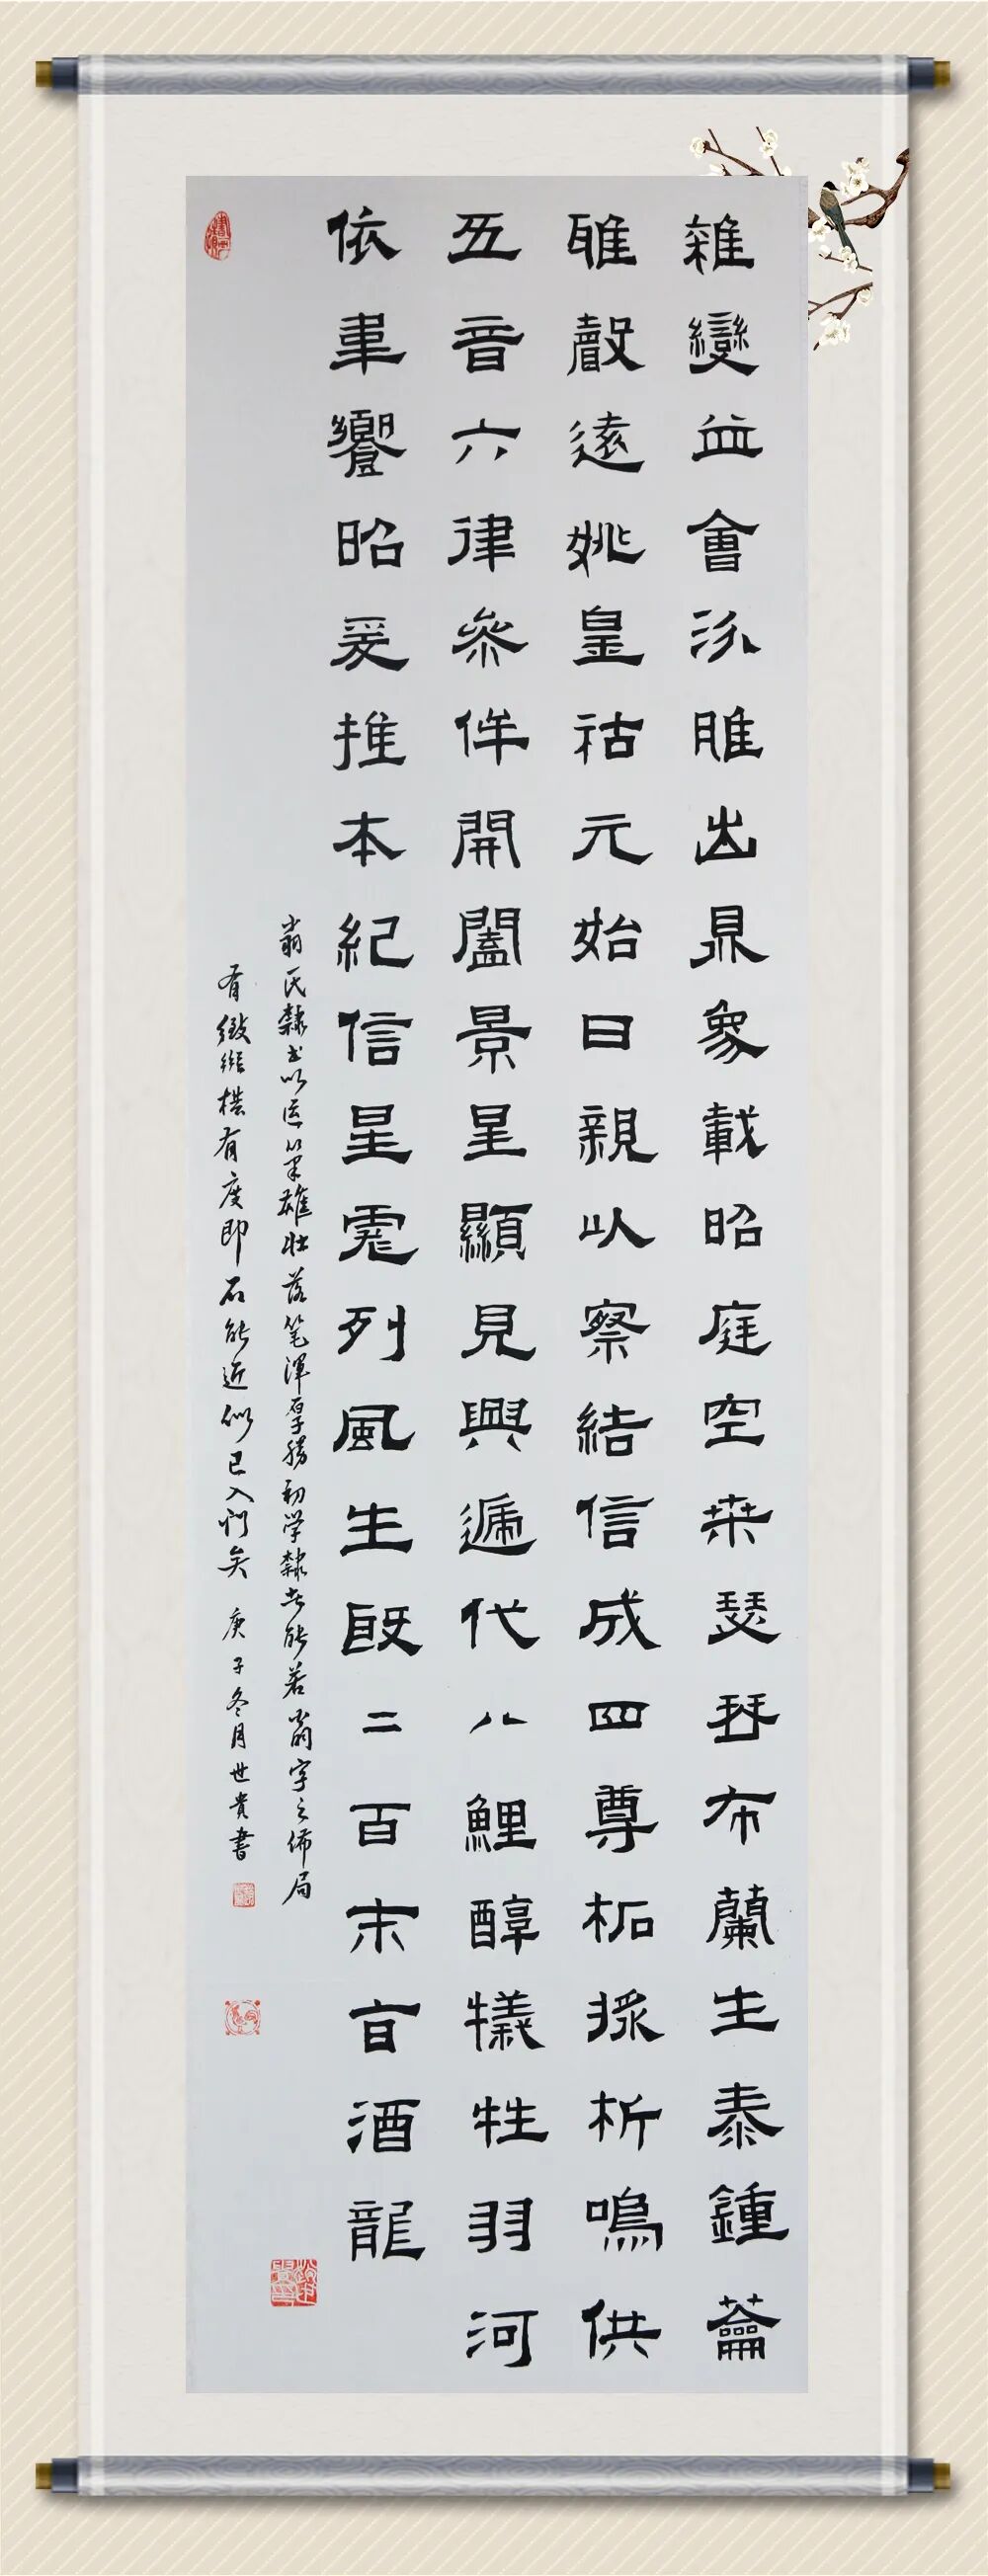 雜變並會汾脽出鼎象載昭庭空桑瑟琴布蘭生泰鍾蘥
雅聲遠姚皇祜元始日親以察結信成四尊柘析鳴供
五音六律參侔開闔景星顯見興遞代八鯉醇犧牲羽河
依韋饗昭爰推本紀信星彪列風生殷二百末旨酒龍
翁氏隸书以运筆雄壮落笔渾厚勝初学隸者能若翁字之佈局
有緻縱横有度即不能近似已入门矣 庚子冬月世貴書